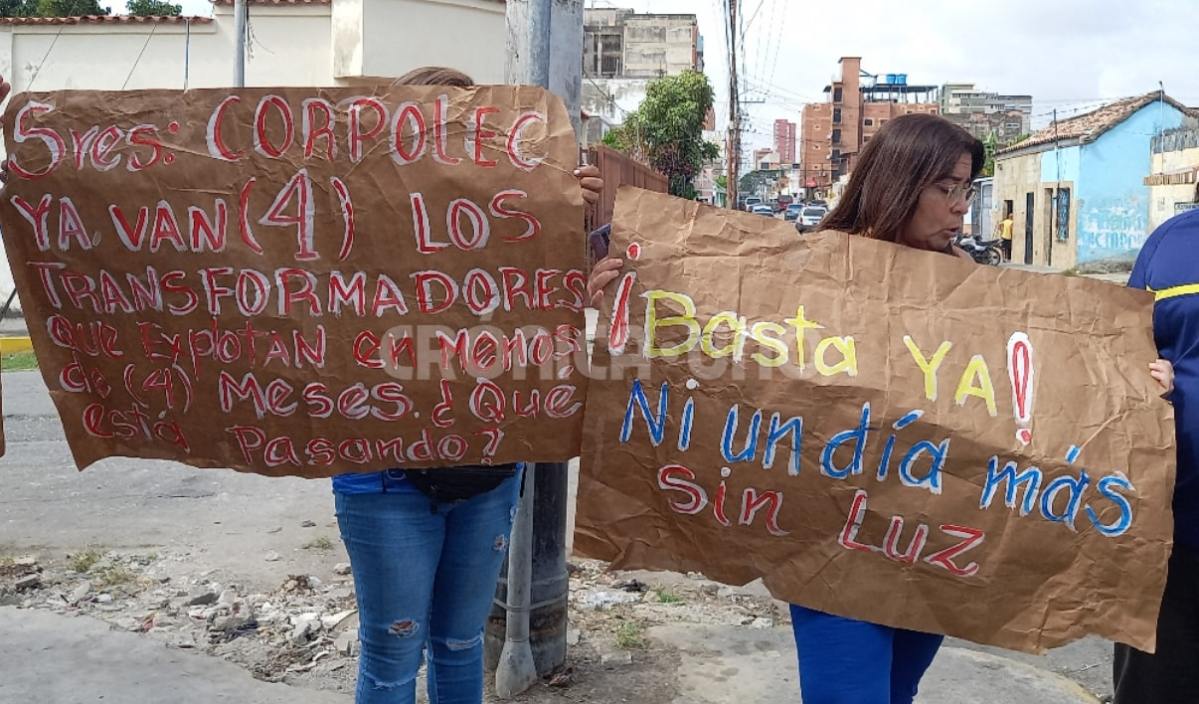 Sres: CORPOLEC
YA VAN (4) LOS
TRANSFORMADORES
que Explotan en menos
de (4) Meses. ¿Qué
está Pasando?
¡Basta YA!
Ni un día más
Sin Luz